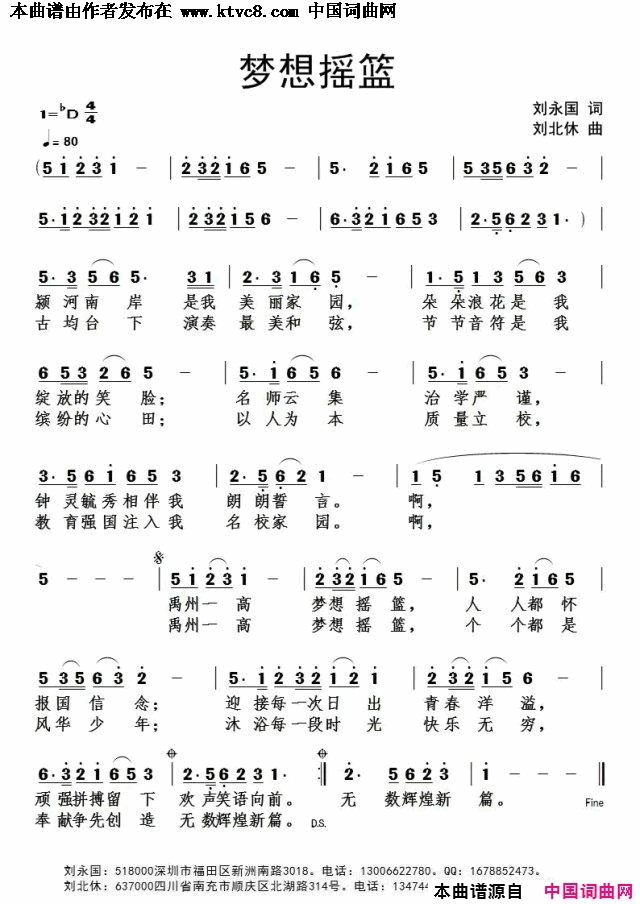 本曲谱由作者发布在 www.ktvc8.com 中国词曲网
梦想摇篮
1=♭D 4/4
刘永国 词
♩= 80
刘北休 曲
(5 1 2 3 1 - | 2 3 2 1 6 5 - | 5· 2 1 6 5 | 5 3 5 6 3 2 - |
5· 1 2 3 2 1 2 1 | 2 3 2 1 5 6 - | 6· 3 2 1 6 5 3 | 2· 5 6 2 3 1· )
5· 3 5 6 5· 3 1 | 2· 3 1 6 5 - | 1· 5 1 3 5 6 5 |
颍河南岸 是我美丽家园， 朵朵浪花是我
古均台下 演奏最美和弦， 节节音符是我
6 5 3 2 6 5 - | 5· 1 6 5 6 - | 5· 1 6 5 3 - |
绽放的笑脸； 名师云集 治学严谨，
缤纷的心田； 以人为本 质量立校，
3· 5 6 1 6 5 3 | 2· 5 6 2 1 - | 1 5 1 3 5 6 1 6 |
钟灵毓秀相伴我 朗朗誓言。 啊，
教育强国注入我 名校家园。 啊，
5 - - - | 5 1 2 3 1 - | 2 3 2 1 6 5 - | 5· 2 1 6 5 |
禹州一高 梦想摇篮， 人人都怀
禹州一高 梦想摇篮， 个个都是
5 3 5 6 3 2 - | 5· 1 2 3 2 1 2 1 | 2 3 2 1 5 6 - |
报国信念； 迎接每一次日出 青春洋溢，
风华少年； 沐浴每一段时光 快乐无穷，
6· 3 2 1 6 5 3 | 2· 5 6 2 3 1 - :| 2· 5 6 2 3 | 1 - - ||
顽强拼搏留下 欢声笑语向前。 无数辉煌新篇。 Fine
奉献争先创造 无数辉煌新篇。 D.S.
刘永国：518000深圳市福田区新洲南路3018。电话：13006622780。QQ：1678852473。
刘北休：637000四川省南充市顺庆区北湖路314号。电话：13474
本曲谱源自 中国词曲网